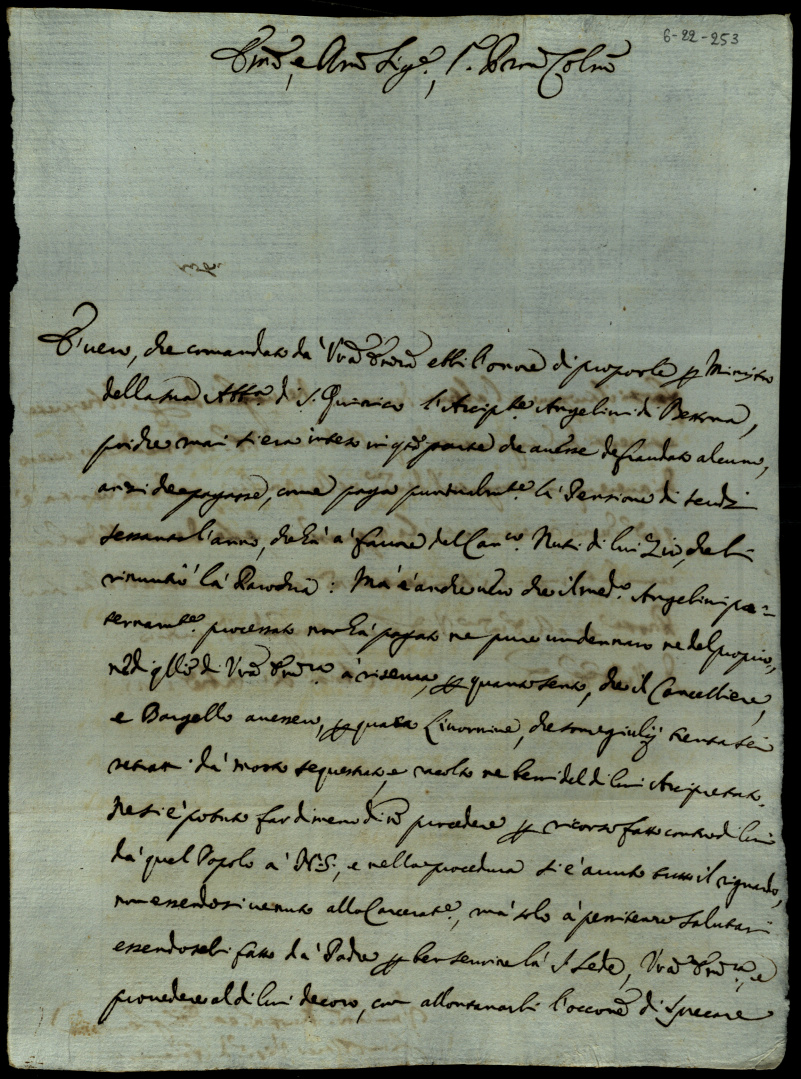 6-22-253
Em̃o, e Rm̃o Sig.e, P.ne Colm̃o
È vero, che comandato dà Vrã Em̃a ebbi l'onore di proporle p Ministro
della sua Abb.a di S. Quirico l'Arcip.te Angelini di
poiche mai si era inteso in q̃te parti che avesse defraudato alcuno,
anzi che pagasse, come paga puntualm.te la Pensione di scudi
sessanta l'anno, che hà à favore del Can.co Nuti di lui Zio, che li
rinuntiò la Parochia: Mà è anche vero che il med.o Angelini pa=
ternam.te processato non hà pagato ne pure un denaro ne del proprio,
ne di q̃llo di Vrã Em̃a à riserva, p quanto sento, che il Cancelliere,
e Bargello avessero, p quattro Livornine, che sono giulij trenta sei
retratti dà mosto sequestrato, e raccolto ne beni del di lui Arcipretato.
Ne si è potuto far di meno di nõ procedere p ricorso fatto contro di lui
dà quel Popolo à N.S., e nella procedura si è avuto tutto il riguardo,
non essendosi venuto alla Carcerat.e, mà solo à penitenze salutari
essendoseli fatto dà Padre p ben servire la S. Sede, Vrã Em̃a, e
provedere al di lui decoro, con allontanarli l'occõne di sprecare